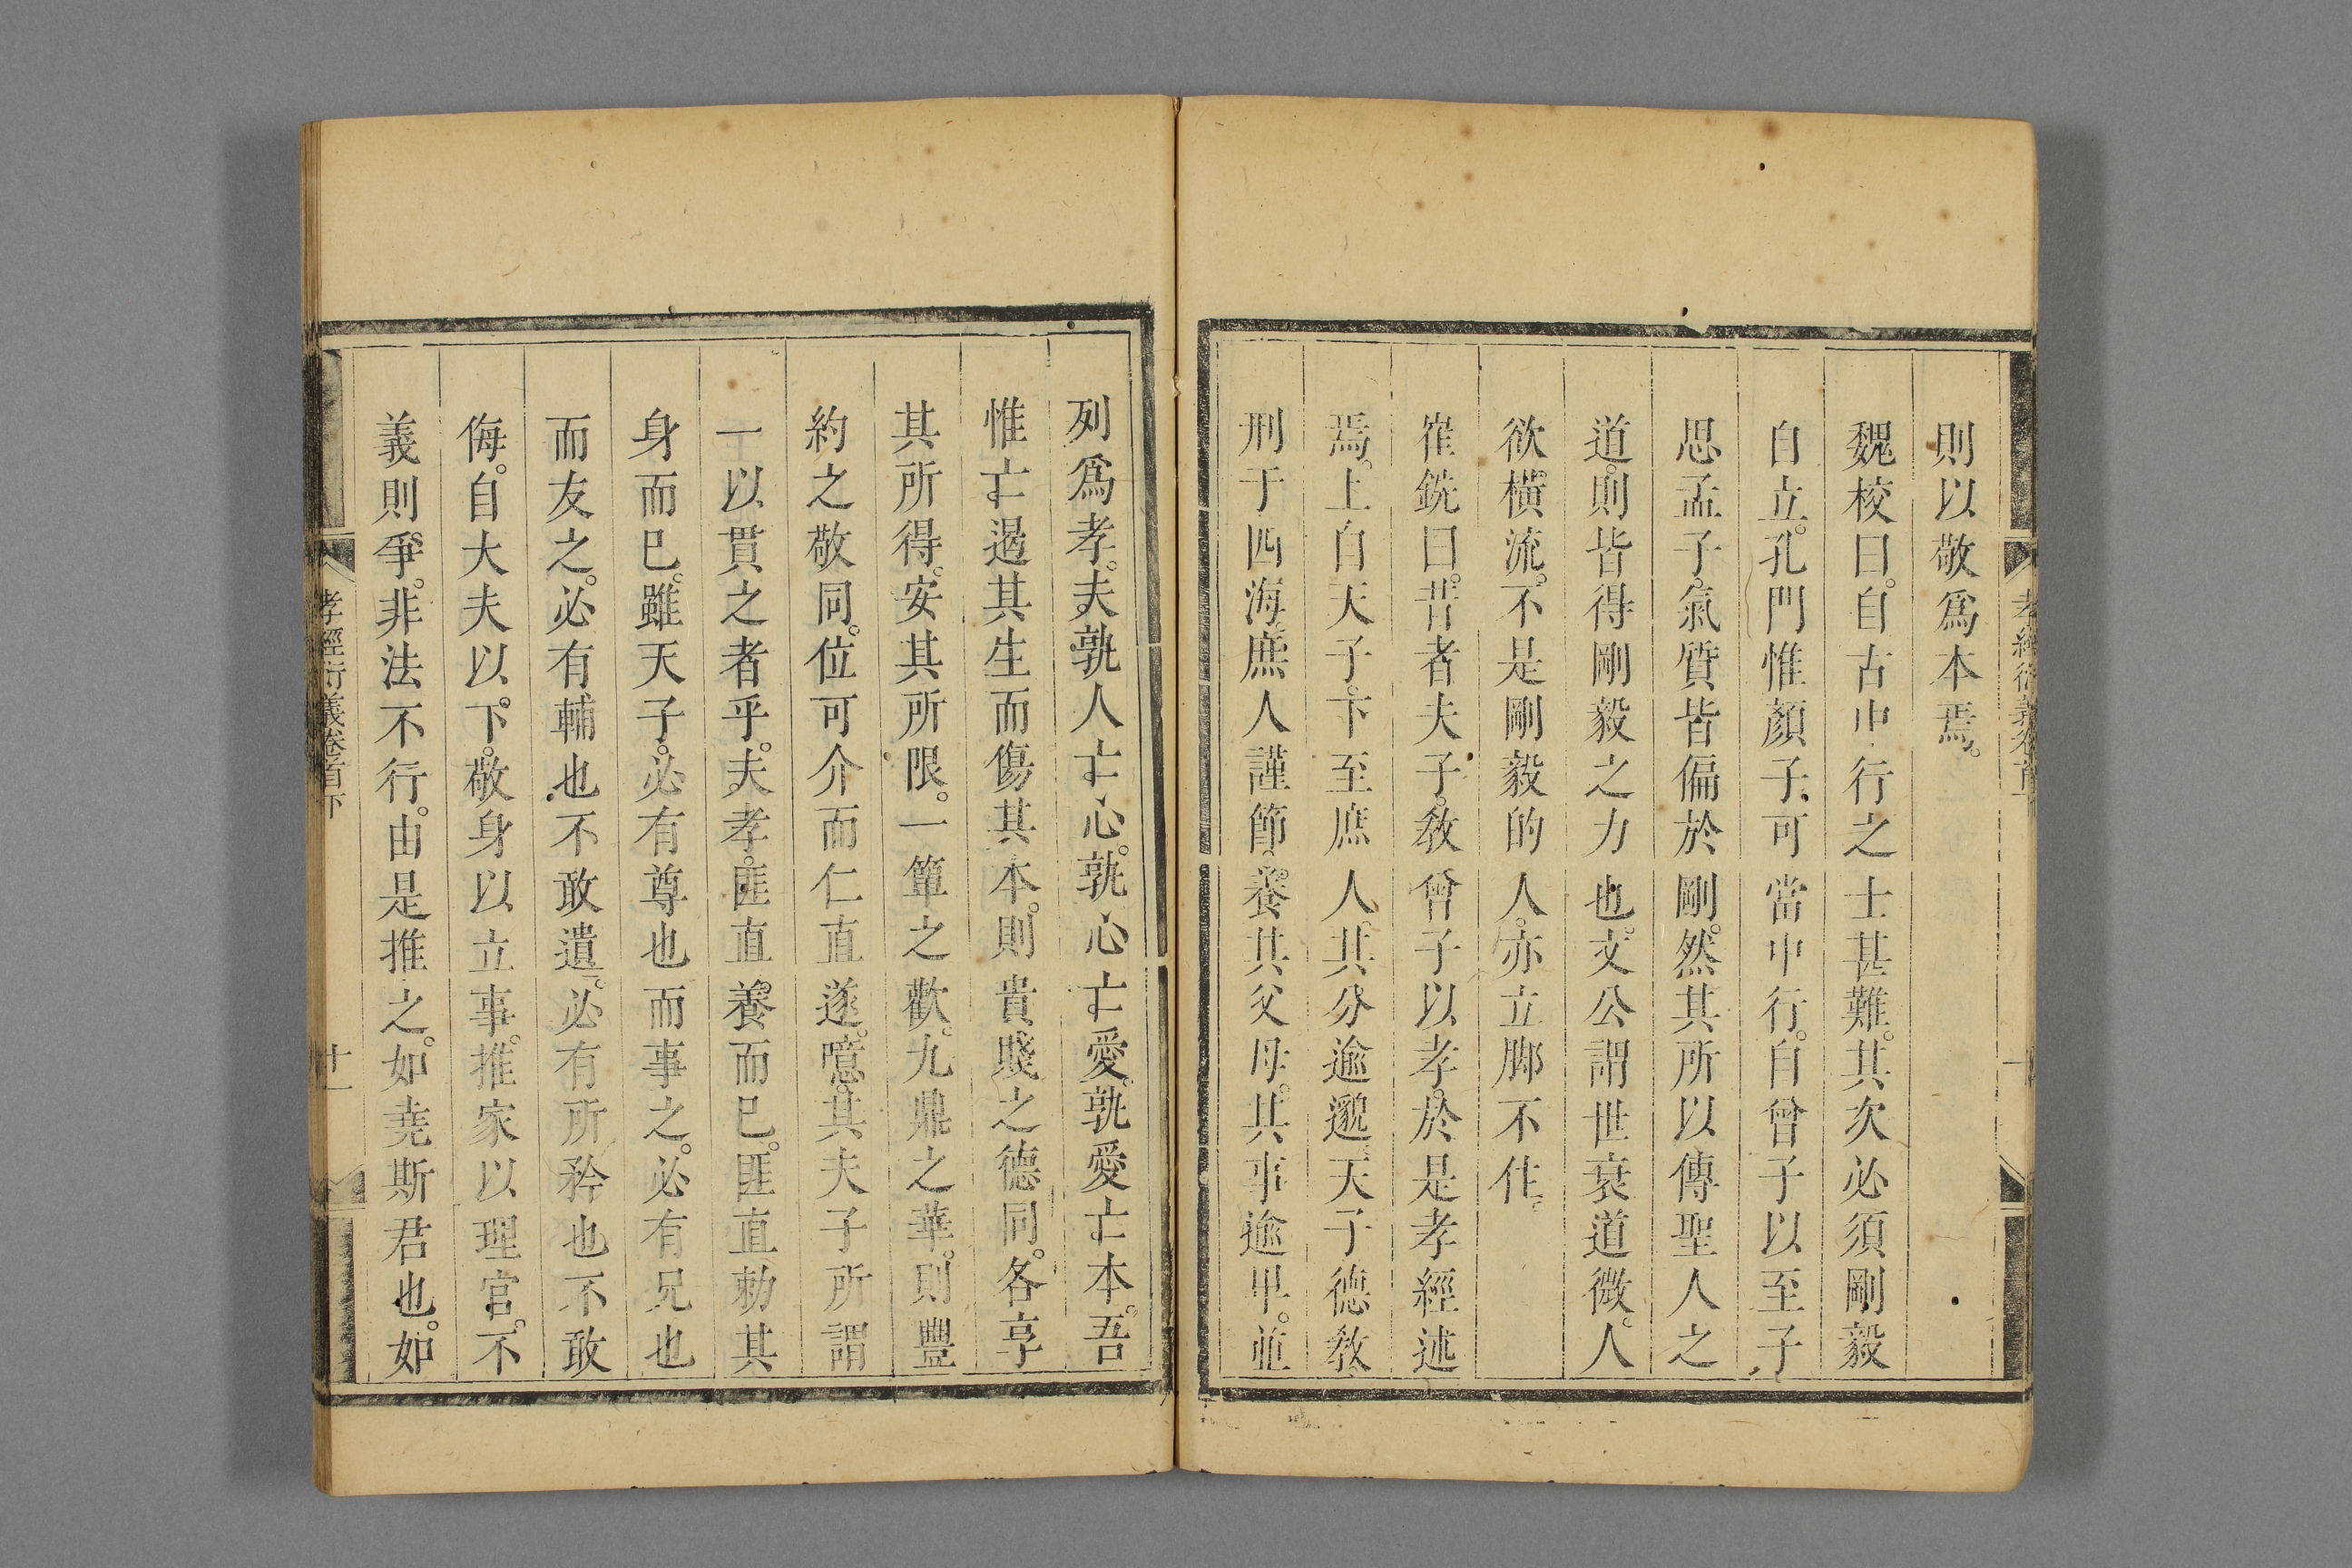 孝經衍義卷首下
則以敬爲本焉。
魏校曰。自古中行之士甚難。其次必須剛毅
自立。孔門惟顏子可當中行。自曾子以至子
思孟子。氣質皆偏於剛。然其所以傳聖人之
道。則皆得剛毅之力也。文公謂世衰道微。人
欲橫流。不是剛毅的人。亦立脚不住。
崔銑曰。昔者夫子。敎曾子以孝。於是孝經述
焉。上自天子。下至庶人。其分逾邈。天子德敎
刑于四海。庶人謹節。養其父母。其事逾甲。並
列爲孝。夫孰人亡心。孰心亡愛。孰愛亡本。吾
惟亡遏其生而傷其本。則貴賤之德同。各享
其所得。安其所限。一簞之歡。九鼎之華。則豐
約之敬同。位可介而仁直遂。噫。其夫子所謂
一以貫之者乎。夫孝。匪直養而已。匪直勑其
身而已。雖天子。必有尊也而事之。必有兄也
而友之。必有輔也不敢遺。必有所矜也不敢
侮。自大夫以下。敬身以立事。推家以理官。不
義則爭。非法不行。由是推之。如堯斯君也。如
孝經衍義卷首下
十一